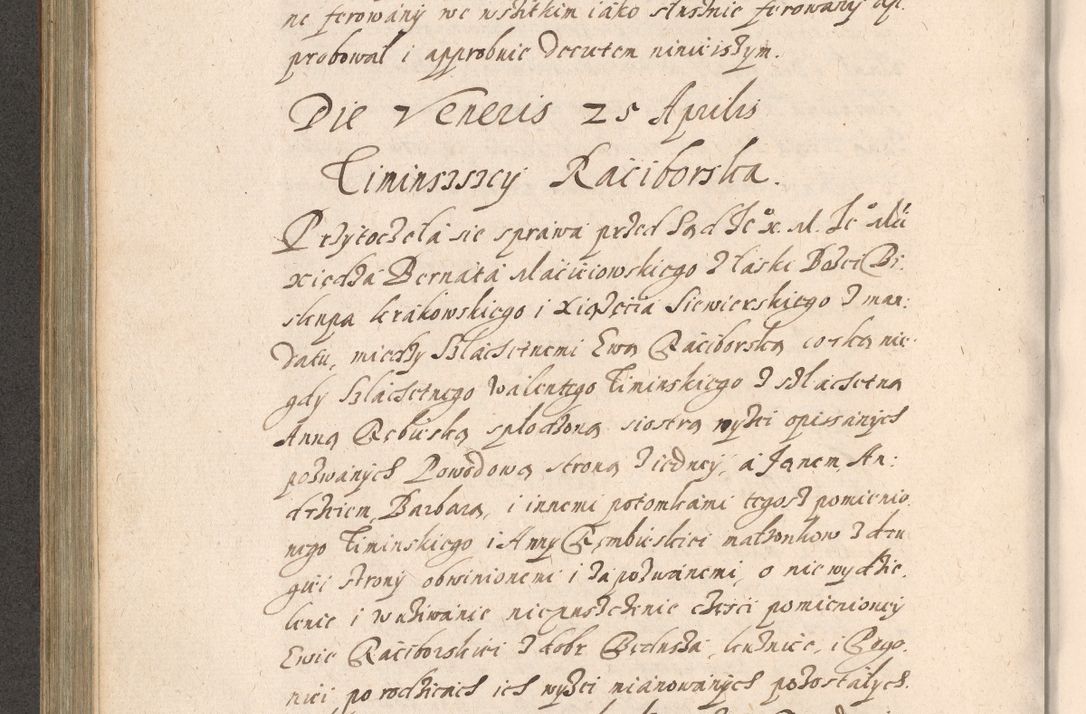 ne ferowany we wszitkim iako słusznie ferowany ap:
probował i approbuie decretem ninieiszym.
Die Veneris 25 Aprilis
Ciminszszcy Raciborska.
Przytoczela sie sprawa przed Sąd Je° x. M. Je° Mći
xiedza Bernata Macieiowskiego z łaski Bożei Bi:
skupa krakowskiego i Xiążęcia Siewierskiego z man:
datu, miedzy Szlachetnemi Ewą Raciborską corką nie:
gdy Szlachetnego Walentego Timinskiego z szlachetną
Anną Rębieską spłodzoną siostrą wyżei opissanych
pozwanych Powodową stroną z iedney, a Janem An:
drzeiem, Barbarą, i innemi potomkami tegosz pomienio
nego Timinskiego i Anny Rembieskiei małżonkow z dru
giei strony obwinionemi i zapozwanemi, o nie wydzie:
lenie i w używanie niepuszczenie części pomienioney
Ewie Raciborskiei z dobr Będuska, kuźnice, i Pogo:
niei po rodzicach ich wyżei mianowanych pozostałych.